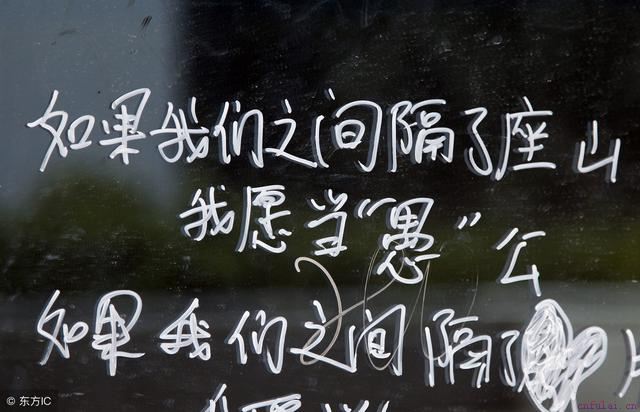 如果我们之间隔了座山
我愿当“愚”公
如果我们之间隔了
我愿当
© 东方IC
cnfulai.cn